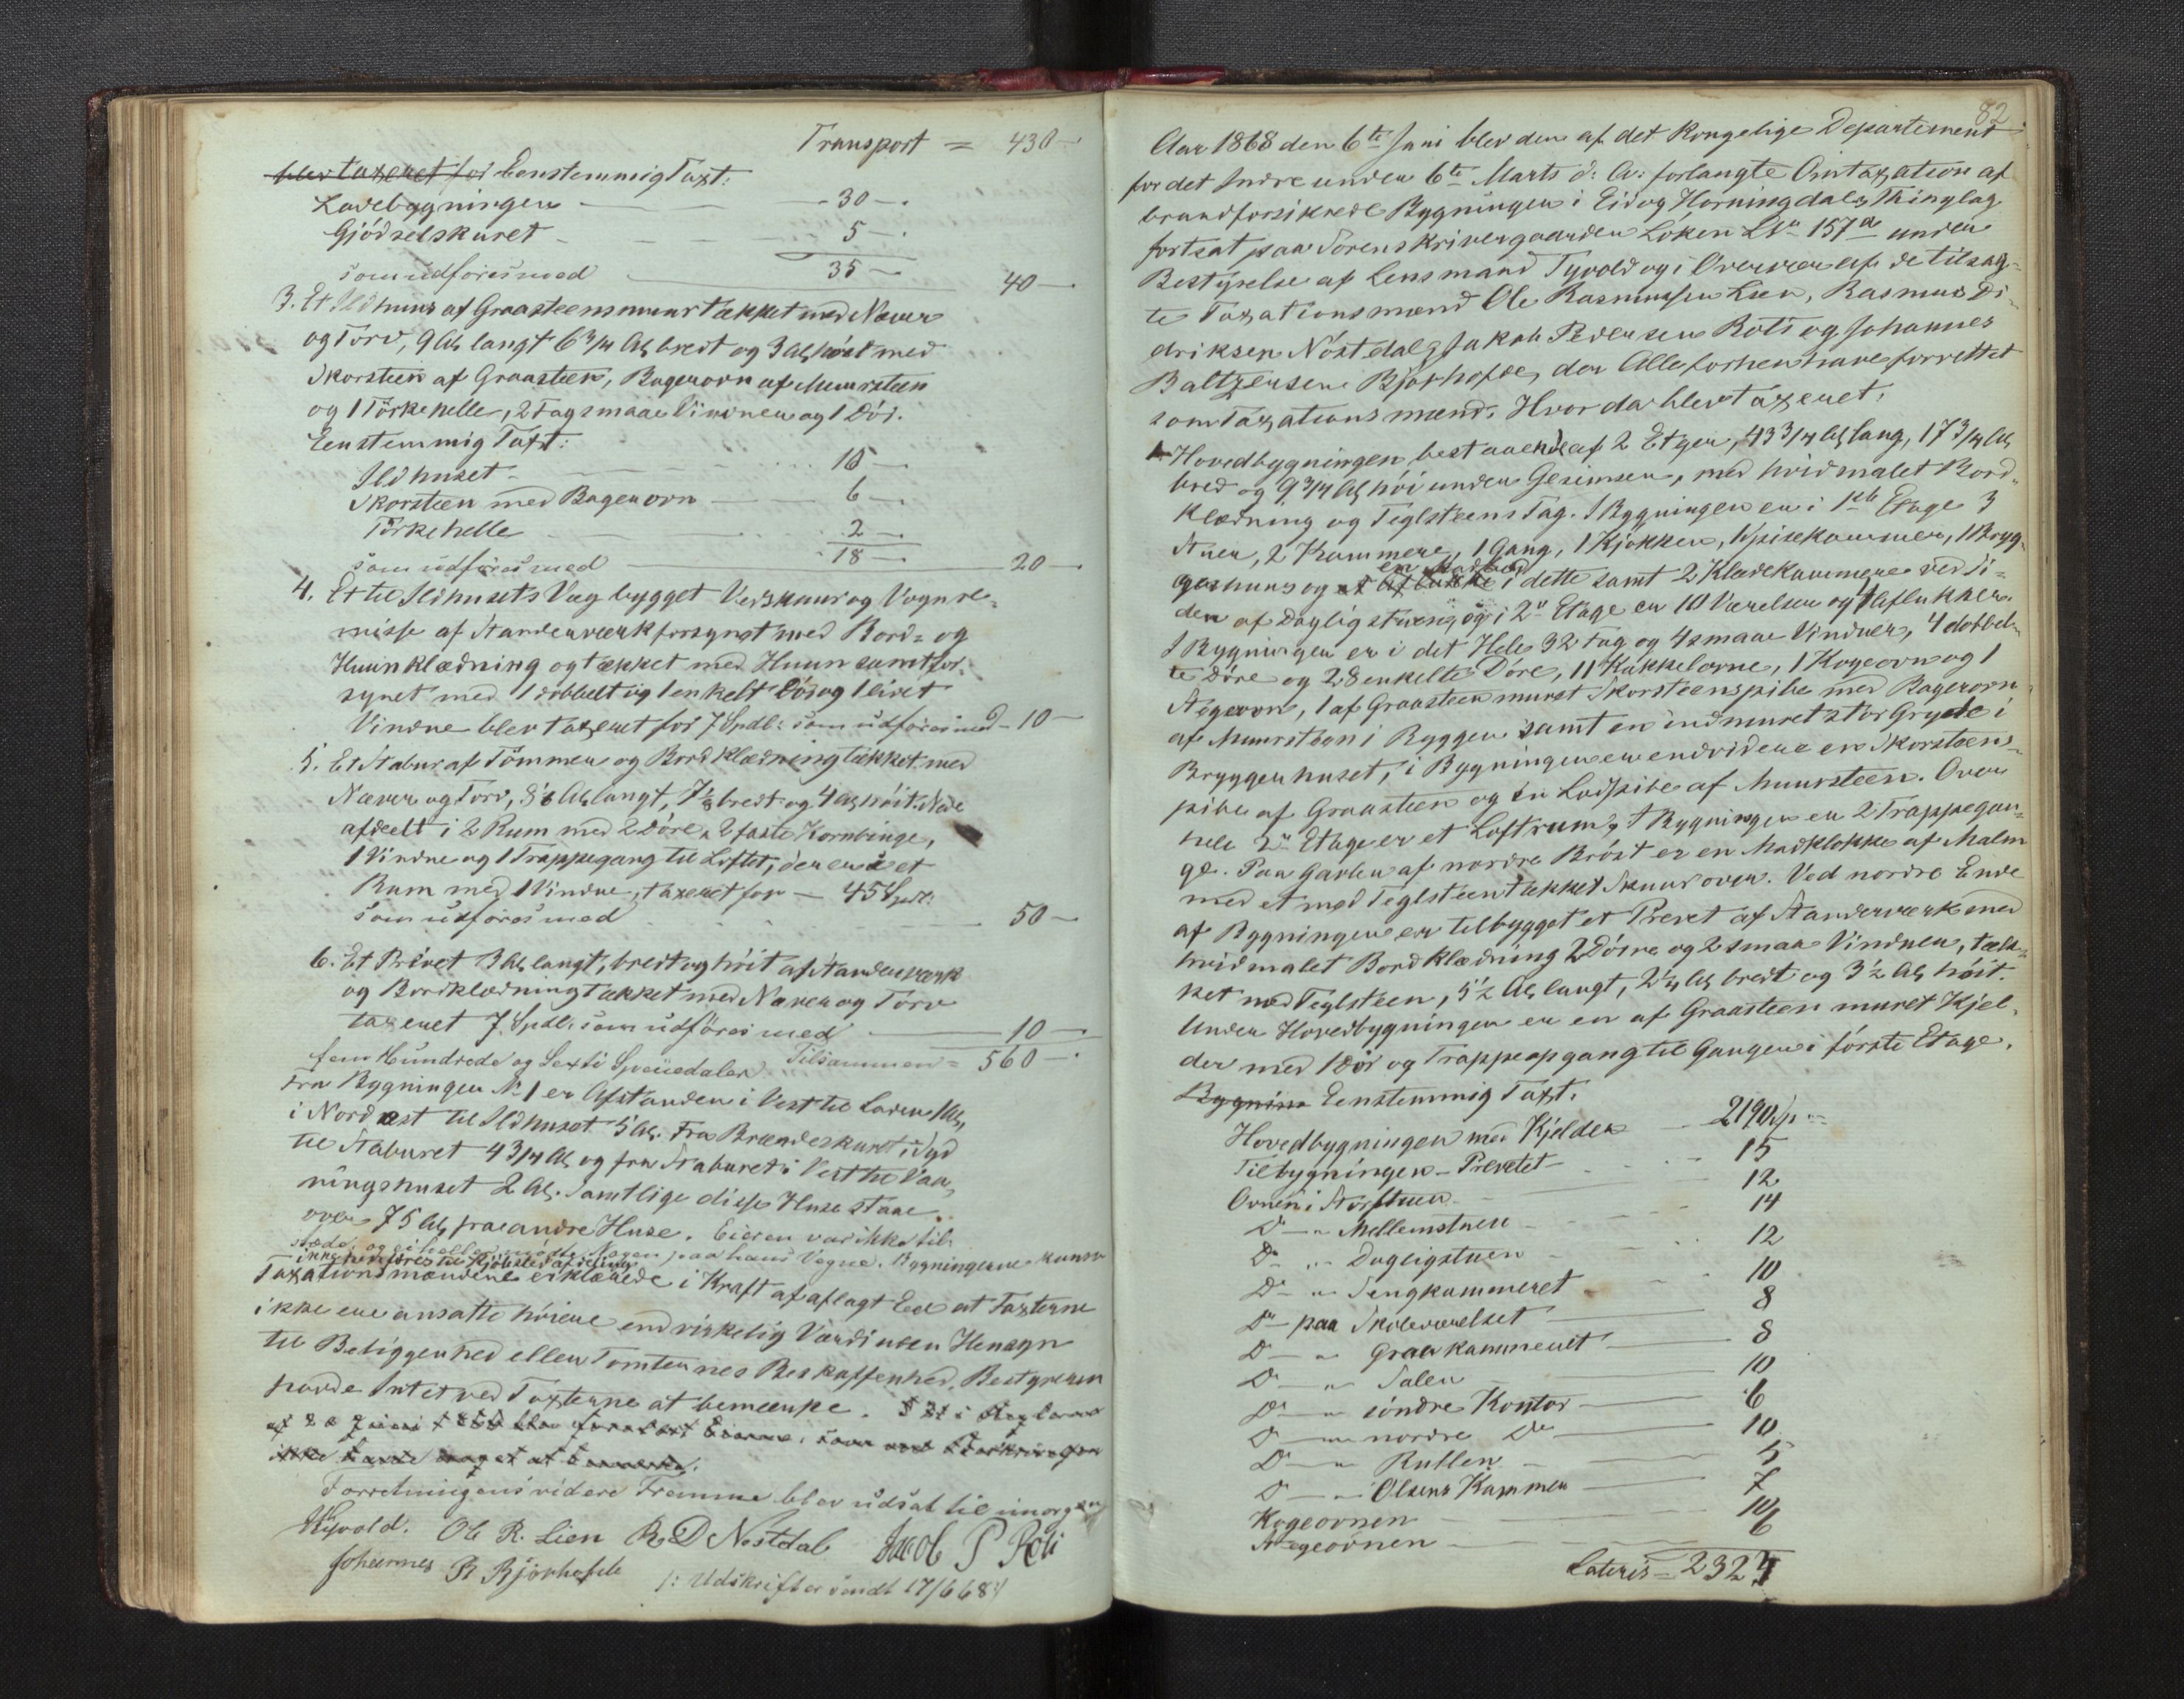 Transport = 430 —
blev taxeret for Eenstemmig Taxt:
Ladebygningen — 30 —
Gjødselskuret — 5 —
35 —
som udføres med — 40 —
3. Et Ildhuus af Graasteensmuur tækket med Næver
og Torv, 9 Al. langt 6 3/4 Al. bredt og 3 Al. høit med
Skorsteen af Graasteen, Bagerovn af Muursteen
og 1 Tørkehelle, 2 Fag smaae Vinduer og 1 Dør.
Eenstemmig Taxt:
Ildhuset — 10 —
Skorsteen med Bagerovn — 6 —
Tørkehelle — 2 —
18 —
som udføres med — 20 —
4. Et til Ildhusets Væg bygget Vedskuur og Vognre-
misse af Standerværk forsynet med Bord- og
Huunklædning og tækket med Huun samt for-
synet med 1 dobbelt og 1 enkelt Dør og 1 lidet
Vindue blev taxeret for 7 Spdl: som udføres med — 10 —
5. Et Stabur af Tømmer og Bordklædning tækket med
Næver og Torv, 8 1/2 Al. langt, 7 1/2 bredt og 4 Al. høit. Nede
afdeelt i 2 Rum med 2 Døre, 2 faste Kornbinge,
1 Vindue og 1 Trappegang til Loftet, der er i et
Rum med 1 Vindue, taxeret for — 45 Spdl:
som udføres med — 50 —
6. Et Privet 3 Al. langt, bredt og høit af Standerværk
og Bordklædning tækket med Næver og Torv
taxeret 7 Spdl. som udføres med — 10 —
fem Hundrede og Sexti Speciedaler. Tilsammen = 560 —
Fra Bygningen No 1 er Afstanden i Vest til Laden 1 Al.,
i Nordost til Ildhuset 5 Al. Fra Brændeskuret i Syd
til Staburet 4 3/4 Al. og fra Staburet i Vest til Vaa-
ningshuset 2 Al. Samtlige disse Huse staae
over 75 Al. fra andre Huse. Eieren var ikke til-
stede og ei heller mødte Nogen paa hans Vegne. Bygningerne kunne
ikke henføres til Kjøbstedafdeling
Taxationsmændene erklærede i Kraft af aflagt Eed at Taxterne
ikke ere ansatte høiere end virkelig Værdi uden Hensyn
til Beliggenhed eller Tomternes Beskaffenhed. Bestyreren
havde Intet ved Taxterne at bemærke.
Forretningens videre Fremme blev udsat til imorgen
Tyvold. Ole R. Lien R. D Nøstdal Jacob P Roti
Johannes B Bjørhofde /: Udskrift er sendt 17/6 68 :/
82
Aar 1868 den 6te Juni blev den af det Kongelige Departement
for det Indre under 6te Marts d: A: forlangte Omtaxation af
brandforsikrede Bygninger i Eid og Horningdals Thinglag
fortsat paa Sorenskrivergaarden Løken LNo 157a under
Bestyrelse af Lensmand Tyvold og i Overvær af de tilsag-
te Taxationsmænd Ole Rasmussen Lien, Rasmus Di-
driksen Nøstdal, Jakob Pedersen Roti og Johannes
Baltzersen Bjørhofde, der Alle forhen have forrettet
som Taxationsmænd. Hvor da blev taxeret:
1. Hovedbygningen bestaaende af 2 Etager, 43 3/4 Al. lang, 17 3/4 Al.
bred og 9 3/4 Al. høi under Gesimsen, med hvidmalet Bord-
klædning og Teglsteens Tag. I Bygningen er i 1ste Etage 3
Stuer, 2 Kammere, 1 Gang, 1 Kjøkken, 1 Spisekammer, 1 Bryg-
gerhuus og et Aflukke i dette samt 2 Klædekammere ved Si-
den af Dagligstuen, og i 2n Etage er 10 Værelser og 1 Aflukker.
I Bygningen er i det Hele 32 Fag og 4 smaae Vinduer, 4 dobbel-
te Døre og 28 enkelte Døre, 11 Kakkelovne, 1 Kogeovn og 1
Stegeovn, 1 af Graasteen muret Skorsteenspibe med Bagerovn
af Muursteen i Bryggerhuset samt en indmuret stor Gryde i
Bryggerhuset, i Bygningen er endvidere en Skorsteens-
pibe af Graasteen og en Lodpibe af Muursteen. Over
hele 2n Etage er et Loftrum, I Bygningen er 2 Trappegan-
ge. Paa Gavlen af nordre Brøst er en Madklokke af Malm
med et med Teglsteen tækket Skuur over. Ved nordre Ende
af Bygningen er tilbygget et Privet af Standerværk med
hvidmalet Bordklædning 2 Døre og 2 smaa Vinduer, tæk-
ket med Teglsteen, 5 1/2 Al. langt, 2 1/4 Al. bredt og 3 1/2 Al. høit.
Under Hovedbygningen er en af Graasteen muret Kjel-
der med 1 Dør og Trappeopgang til Gangen i første Etage.
Bygnin Eenstemmig Taxt:
Hovedbygningen med Kjelder — 2190 Sp
Tilbygningen – Privetet — 15
Ovnen i Storstuen — 12
Do — " Mellemstuen — 14
Do — " Dagligstuen — 12
Do — " Sengkammeret — 10
Do — paa Skoleværelset — 8
Do — " Graakammeret — 8
Do — " Salen — 10
Do — " søndre Kontor — 6
Do — " nordre Do — 10
Do — " Rullen — 5
Do — " Olsens Kammer — 7
Kogeovnen — 10
Stegeovnen — 6
Lateris = 2323